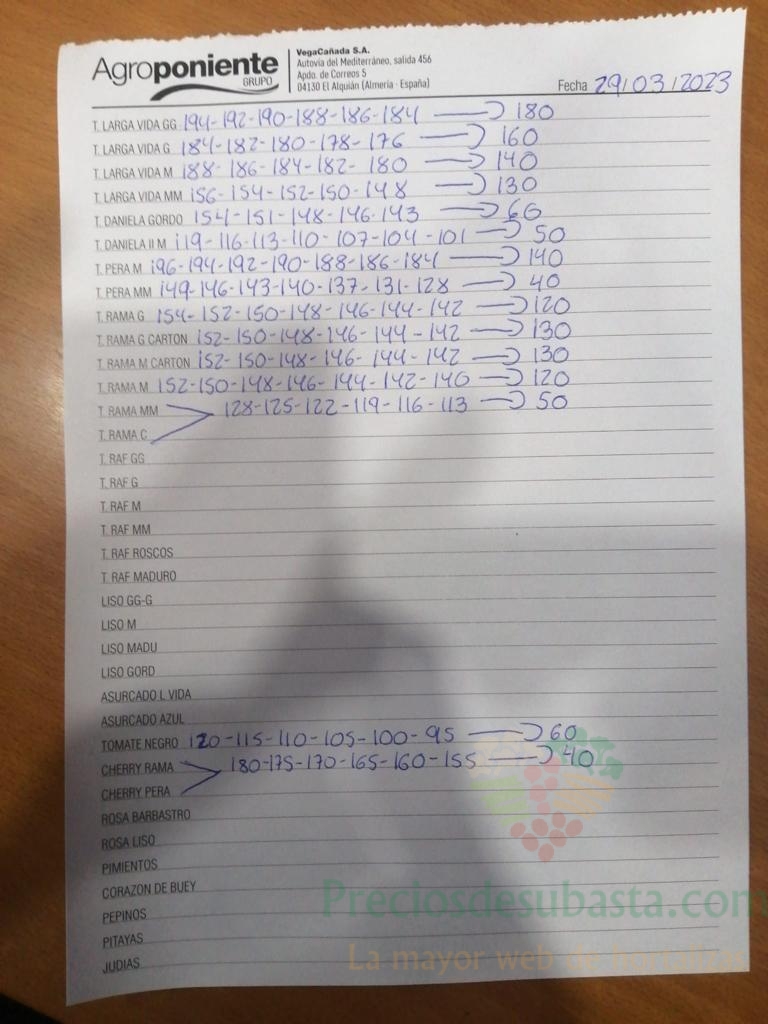 Agroponiente
GRUPO
VegaCañada S.A.
Autovía del Mediterráneo, salida 456
Apdo. de Correos 5
04130 El Alquián (Almería - España)
Fecha 29/03/2023
T. LARGA VIDA GG 194-192-190-188-186-184 → 180
T. LARGA VIDA G 184-182-180-178-176 → 160
T. LARGA VIDA M 188-186-184-182-180 → 140
T. LARGA VIDA MM 156-154-152-150-148 → 130
T. DANIELA GORDO 154-151-148-146-143 → 60
T. DANIELA II M 119-116-113-110-107-104-101 → 50
T. PERA M 196-194-192-190-188-186-184 → 140
T. PERA MM 149-146-143-140-137-131-128 → 40
T. RAMA G 154-152-150-148-146-144-142 → 120
T. RAMA G CARTON 152-150-148-146-144-142 → 130
T. RAMA M CARTON 152-150-148-146-144-142 → 130
T. RAMA M 152-150-148-146-144-142-140 → 120
T. RAMA MM 128-125-122-119-116-113 → 50
T. RAMA C
T. RAF GG
T. RAF G
T. RAF M
T. RAF MM
T. RAF ROSCOS
T. RAF MADURO
LISO GG-G
LISO M
LISO MADU
LISO GORD
ASURCADO L VIDA
ASURCADO AZUL
TOMATE NEGRO 120-115-110-105-100-95 → 60
CHERRY RAMA 180-175-170-165-160-155 → 40
CHERRY PERA
ROSA BARBASTRO
ROSA LISO
PIMIENTOS
CORAZON DE BUEY
PEPINOS
PITAYAS
JUDIAS
Preciosdesubasta.com
La mayor web de hortalizas